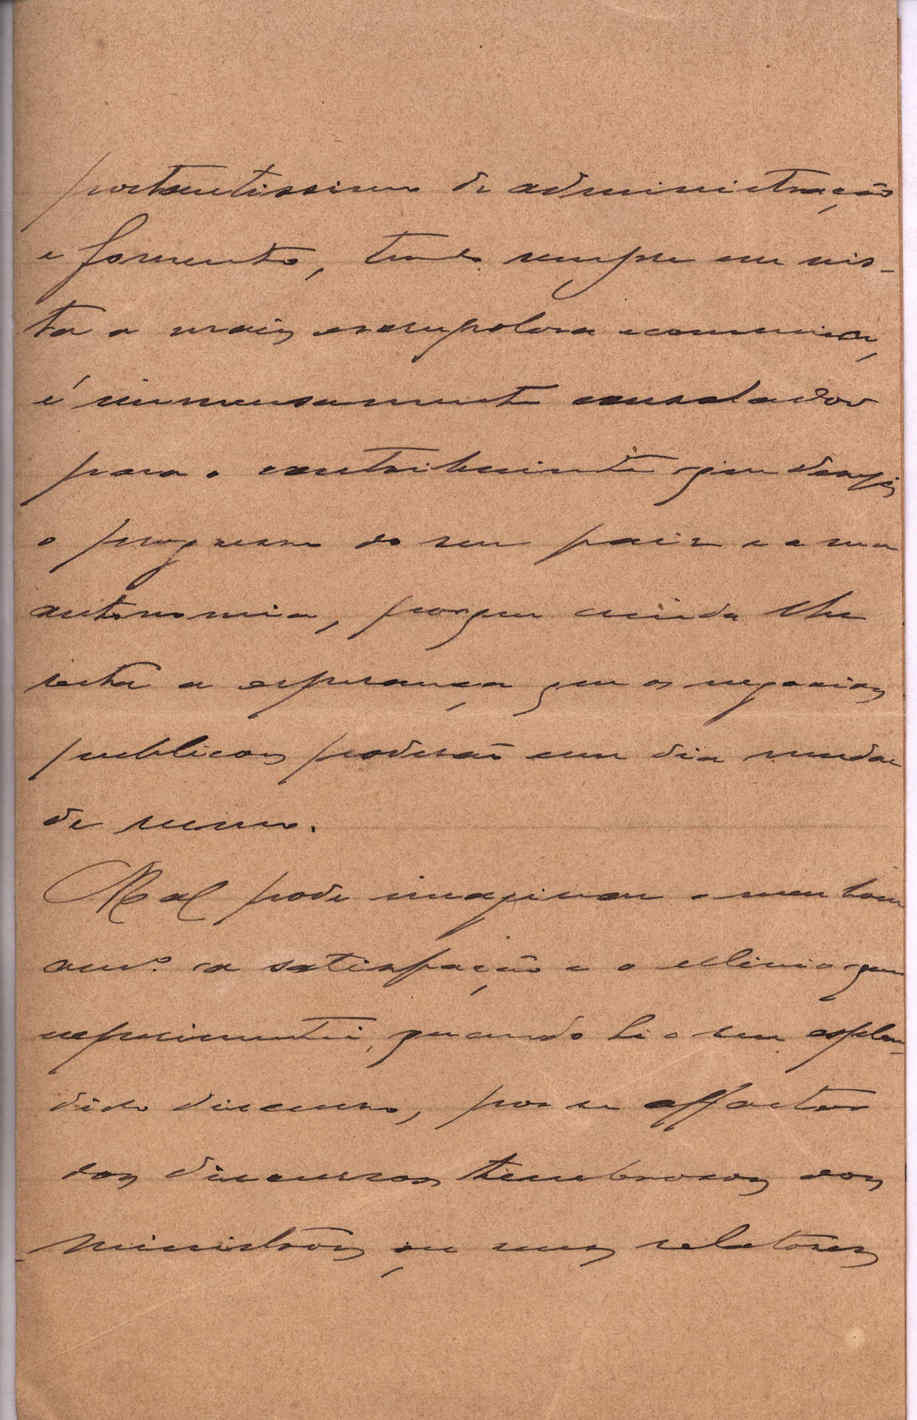 portantissimo de administração
e fomento, tendo sempre em vis-
ta a mais escrupolosa economia,
é immensamente consolador
para o contribuinte que deseja
o progresso do seu paiz e a sua
autonomia, porque ainda lhe
resta a esperança que os negocios
publicos poderão um dia mudar
de rumo.
Mal pode imaginar o meu bom
amº. a satisfação e o allivio que
experimentei, quando li o seu esplen-
dido discurso, por se affastar
dos discursos tenebrosos dos
ministros, ou seus relatores